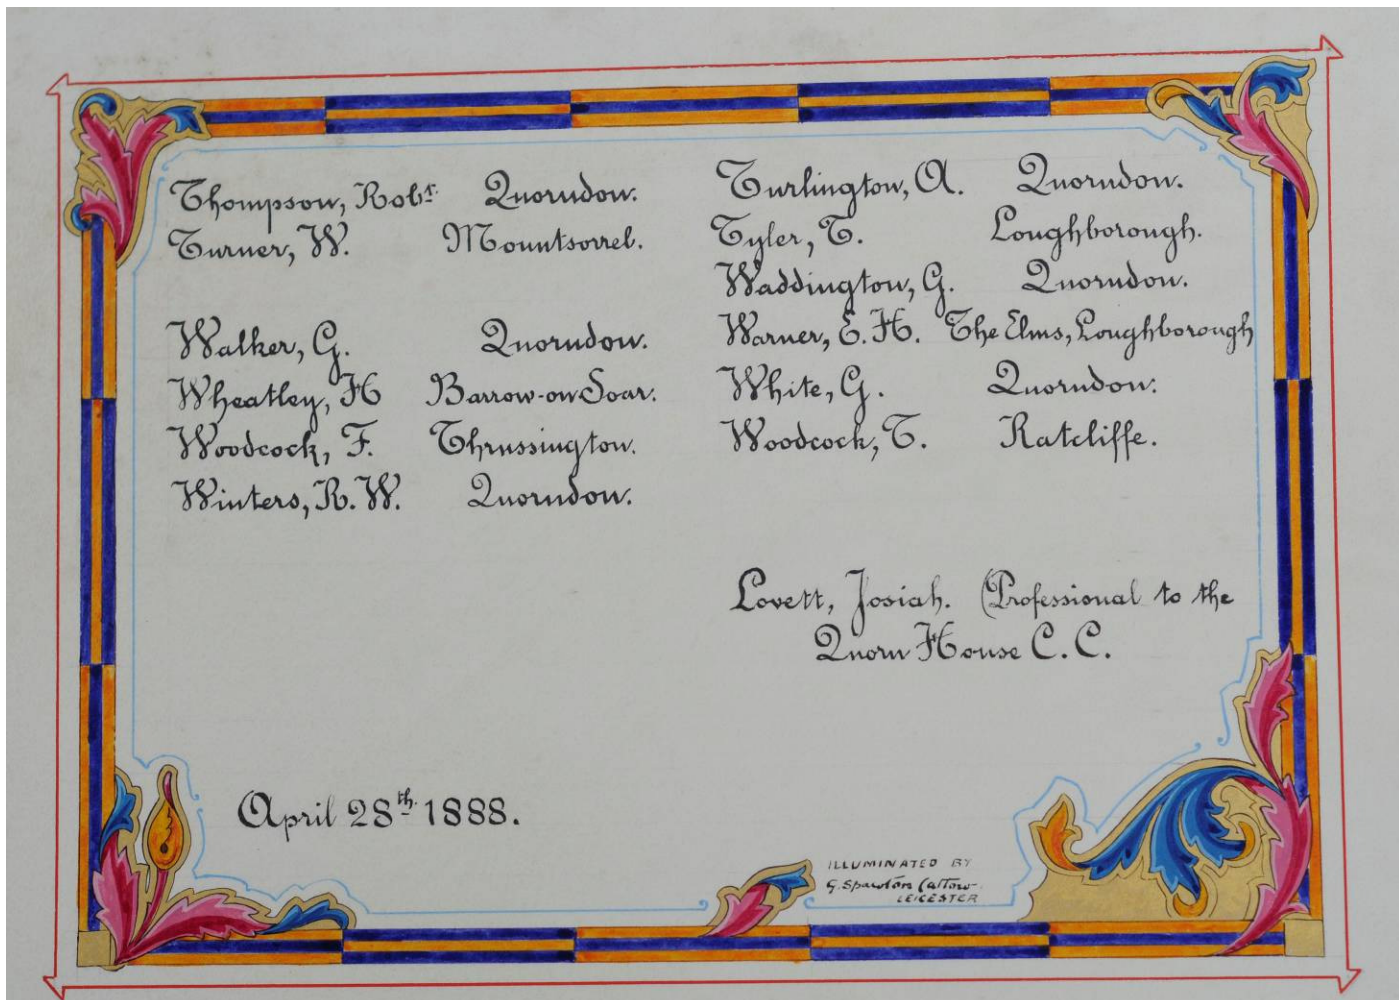 Thompson, Robt. Quorndon.
Turner, W. Mountsorrel.
Walker, G. Quorndon.
Wheatley, H Barrow-on-Soar.
Woodcock, F. Thrussington.
Winters, R. W. Quorndon.
Turlington, A. Quorndon.
Tyler, T. Loughborough.
Waddington, G. Quorndon.
Warner, E. H. The Elms, Loughborough
White, G. Quorndon.
Woodcock, T. Ratcliffe.
Lovett, Josiah. (Professional to the
Quorn House C. C.
April 28th. 1888.
ILLUMINATED BY
G. Spawton Cattow
LEICESTER